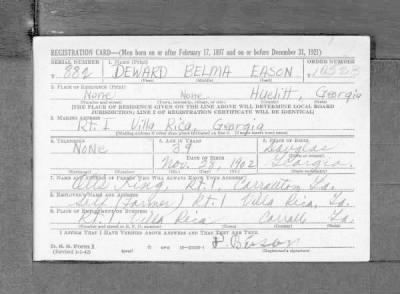 REGISTRATION CARD—(Men born on or after February 17, 1897 and on or before December 31, 1921)
SERIAL NUMBER 1. NAME (Print) ORDER NUMBER
882 DEWARD BELMA EASON
(First) (Middle) (Last)
2. PLACE OF RESIDENCE (Print)
None None Georgia
(Number and street) (Town, township, village, or city) (County) (State)
[THE PLACE OF RESIDENCE GIVEN ON THE LINE ABOVE WILL DETERMINE LOCAL BOARD
JURISDICTION; LINE 2 OF REGISTRATION CERTIFICATE WILL BE IDENTICAL]
3. MAILING ADDRESS
Rt. I Villa Rica, Georgia
4. TELEPHONE 5. AGE IN YEARS 6. PLACE OF BIRTH
None 39 Douglas
DATE OF BIRTH
Nov. 1902 Georgia
7. NAME AND ADDRESS OF PERSON WHO WILL ALWAYS KNOW YOUR ADDRESS
King, Rt. 1, Carrollton Ga.
8. EMPLOYER'S NAME AND ADDRESS
Self (Farmer) Rt. 1 Villa Rica, Ga.
9. PLACE OF EMPLOYMENT OR BUSINESS
Rt. 1, Villa Rica Carroll Ga.
(Number and street or R. F. D. number) (Town) (County) (State)
I AFFIRM THAT I HAVE VERIFIED ABOVE ANSWERS AND THAT THEY ARE TRUE.
D. S. S. FORM 1
(Revised 1-1-42)